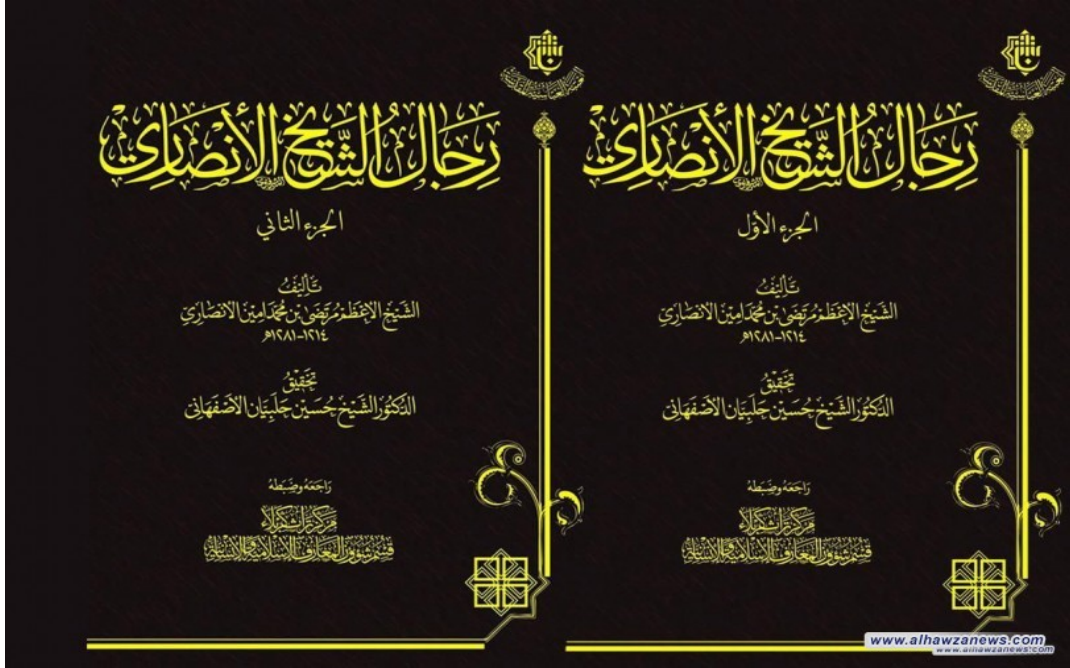 رِجَالُ الشَّيْخِ الأَنْصَارِيّ
الجزء الأوّل
تَأْلِيفُ
الشَّيْخِ الأَعْظَمِ مُرْتَضَى بْنِ مُحَمَّد أَمِين الأَنْصَارِيّ
١٢١٤-١٢٨١هـ
تَحْقِيقُ
الدّكْتُور الشَّيْخ حُسَيْن حَلَبِيَان الأَصْفَهَانِي
رَاجَعَهُ وضَبَطَهُ
مَرْكَزُ تُرَاثِ كَرْبَلَاء
قِسْمُ شُؤُونِ المَعَارِفِ الإِسْلَامِيَّةِ وَالإِنْسَانِيَّةِ
رِجَالُ الشَّيْخِ الأَنْصَارِيّ
الجزء الثاني
تَأْلِيفُ
الشَّيْخِ الأَعْظَمِ مُرْتَضَى بْنِ مُحَمَّد أَمِين الأَنْصَارِيّ
١٢١٤-١٢٨١هـ
تَحْقِيقُ
الدّكْتُور الشَّيْخ حُسَيْن حَلَبِيَان الأَصْفَهَانِي
رَاجَعَهُ وضَبَطَهُ
مَرْكَزُ تُرَاثِ كَرْبَلَاء
قِسْمُ شُؤُونِ المَعَارِفِ الإِسْلَامِيَّةِ وَالإِنْسَانِيَّةِ
www.alhawzanews.com
www.alhawzanews.com